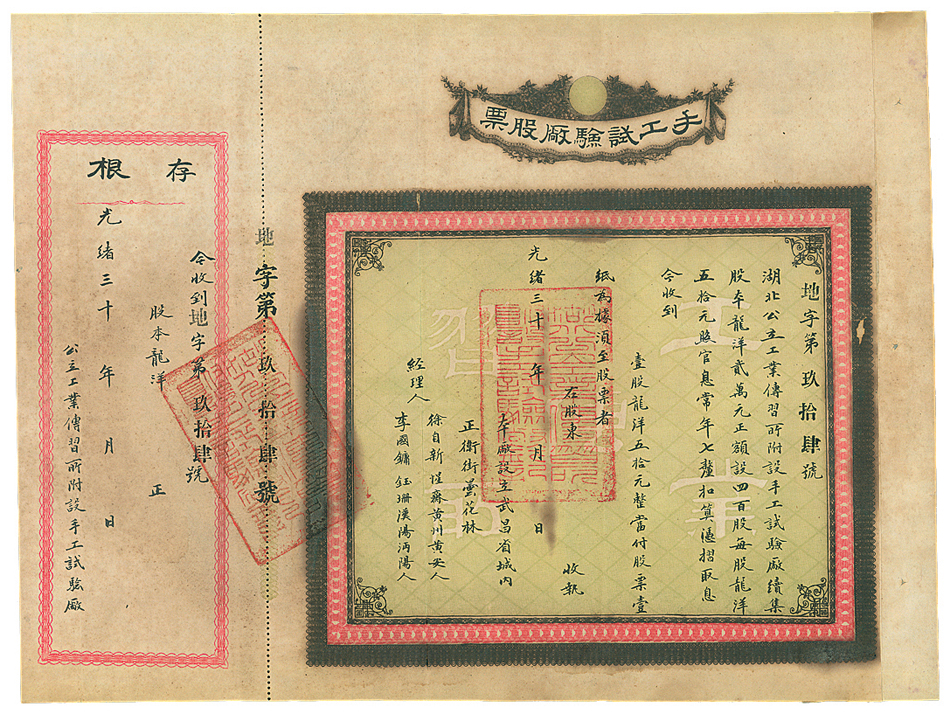 手工試驗廠股票
地字第玖拾肆號
湖北公立工業傳習所附設手工試驗廠續集
股本龍洋貳萬元正額設四百股每股龍洋
五拾元照官息常年七釐扣算憑摺取息
今收到
壹股龍洋五拾元整當付股票壹
紙為據須至股票者
在股東
收執
光緒三十年月日
本廠設立武昌省城內
正衛街曇花林
經理人
徐自新 黃州黃安人
李國鏞 鈺珊漢陽沔陽人
地字第玖拾肆號
存根
今收到地字第玖拾肆號
股本龍洋 正
光緒三十年月日
公立工業傳習所附設手工試驗廠